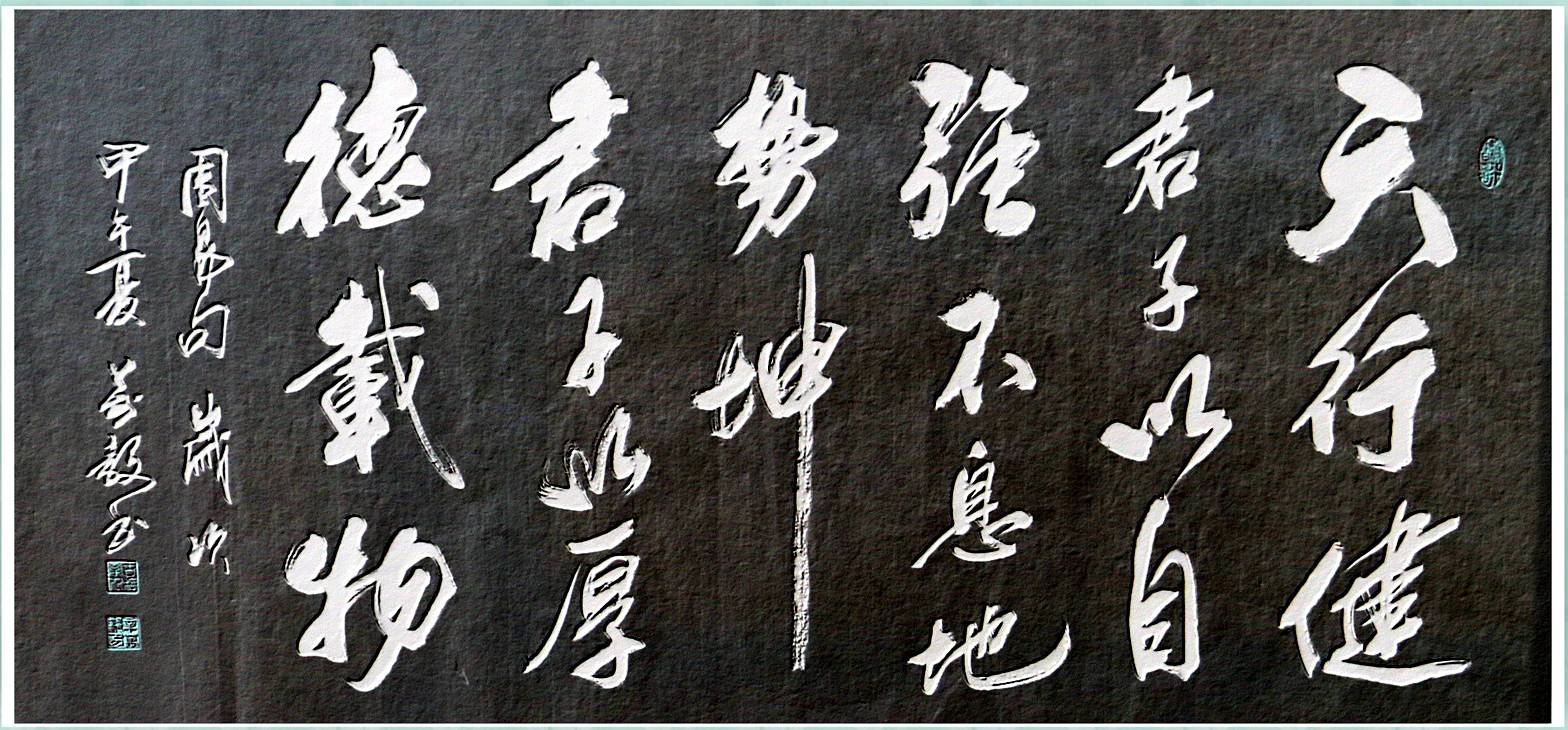 天行健
君子以自
強不息地
勢坤
君子以厚
德載物
周易句歲次
甲午夏